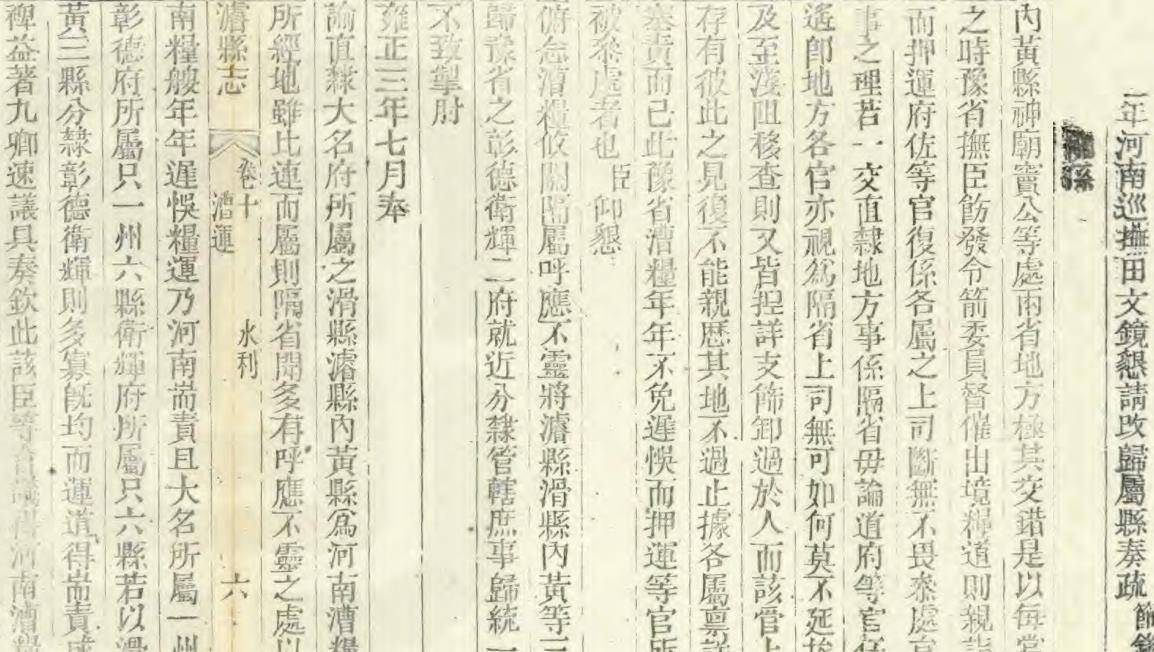 二年河南巡撫田文鏡懇請改歸屬縣奏疏節錄
內黃縣神廟竇公等處兩省地方極其交錯是以每當
之時豫省撫臣飭發令箭委員督催出境糧道則親
而押運府佐等官復係各屬之上司斷無不畏叅處
事之理若一交直隸地方事係隔省毋論道府等官
遙卽地方各官亦視爲隔省上司無可如何莫不延挨
及至淺阻移查則又皆揑詳支飾卸過於人而該管上
存有彼此之見復不能親歷其地不過止據各屬禀詳
塞責而已此豫省漕糧年年不免遲悞而押運等官所
被叅處者也臣仰懇
俯念漕糧攸關隔屬呼應不靈將濬縣滑縣內黃等三
歸豫省之彰德衛輝二府就近分隸管轄庶事歸統一
不致掣肘
雍正三年七月奉
諭直隸大名府所屬之滑縣濬縣內黃縣爲河南漕糧
所經地雖比連而屬則隔省聞多有呼應不靈之處以
濬縣志 卷十 漕運 水利 六
南糧艘年年遲悞糧運乃河南耑責且大名所屬一州
彰德府所屬只一州六縣衛輝府所屬只六縣若以滑
黃三縣分隸彰德衛輝則多寡旣均而運道得耑責成
裨益著九卿速議具奏欽此該臣等會議得河南漕糧